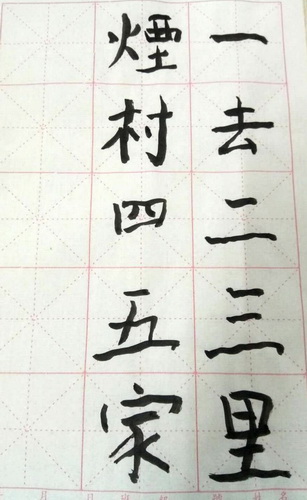 一去二三里
煙村四五家